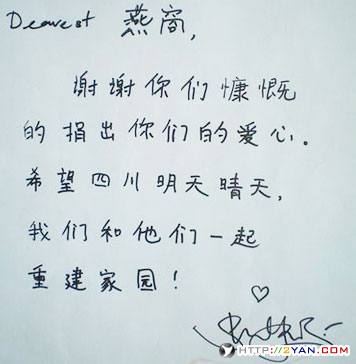 Dearest 燕窝，
谢谢你们慷慨
的捐出你们的爱心。
希望四川明天晴天，
我们和他们一起
重建家园！
HTTP://2YAN.COM